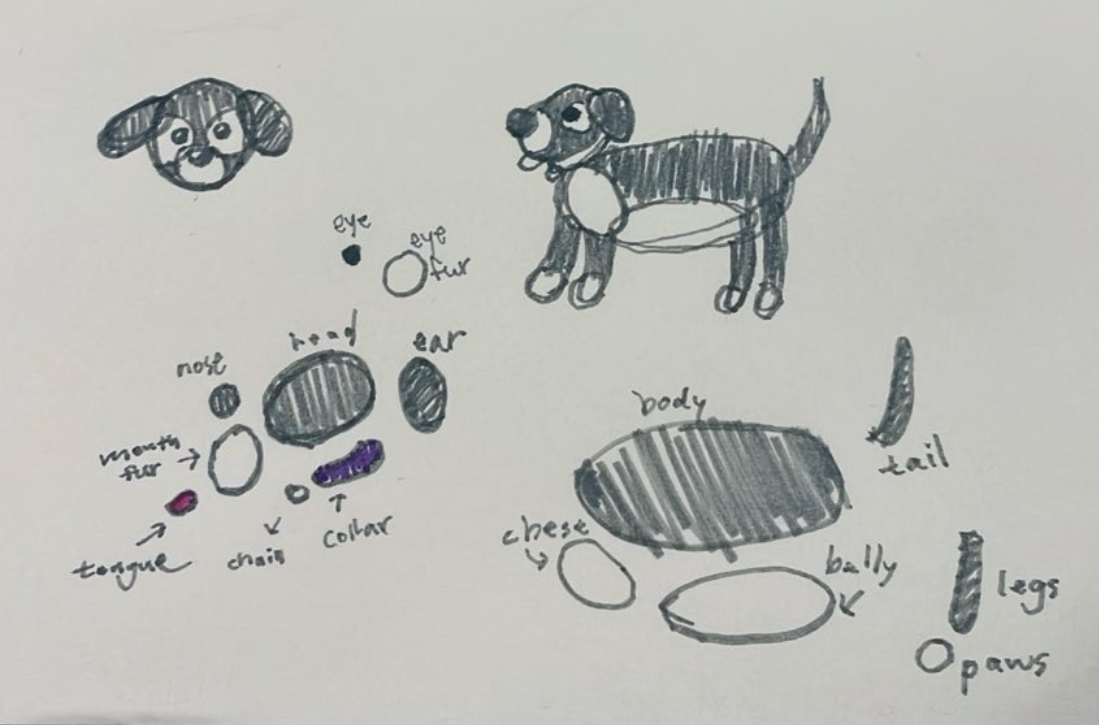 eye
eye
fur
head
ear
nose
mouth
fur
tongue
chain
collar
body
tail
chest
belly
legs
paws